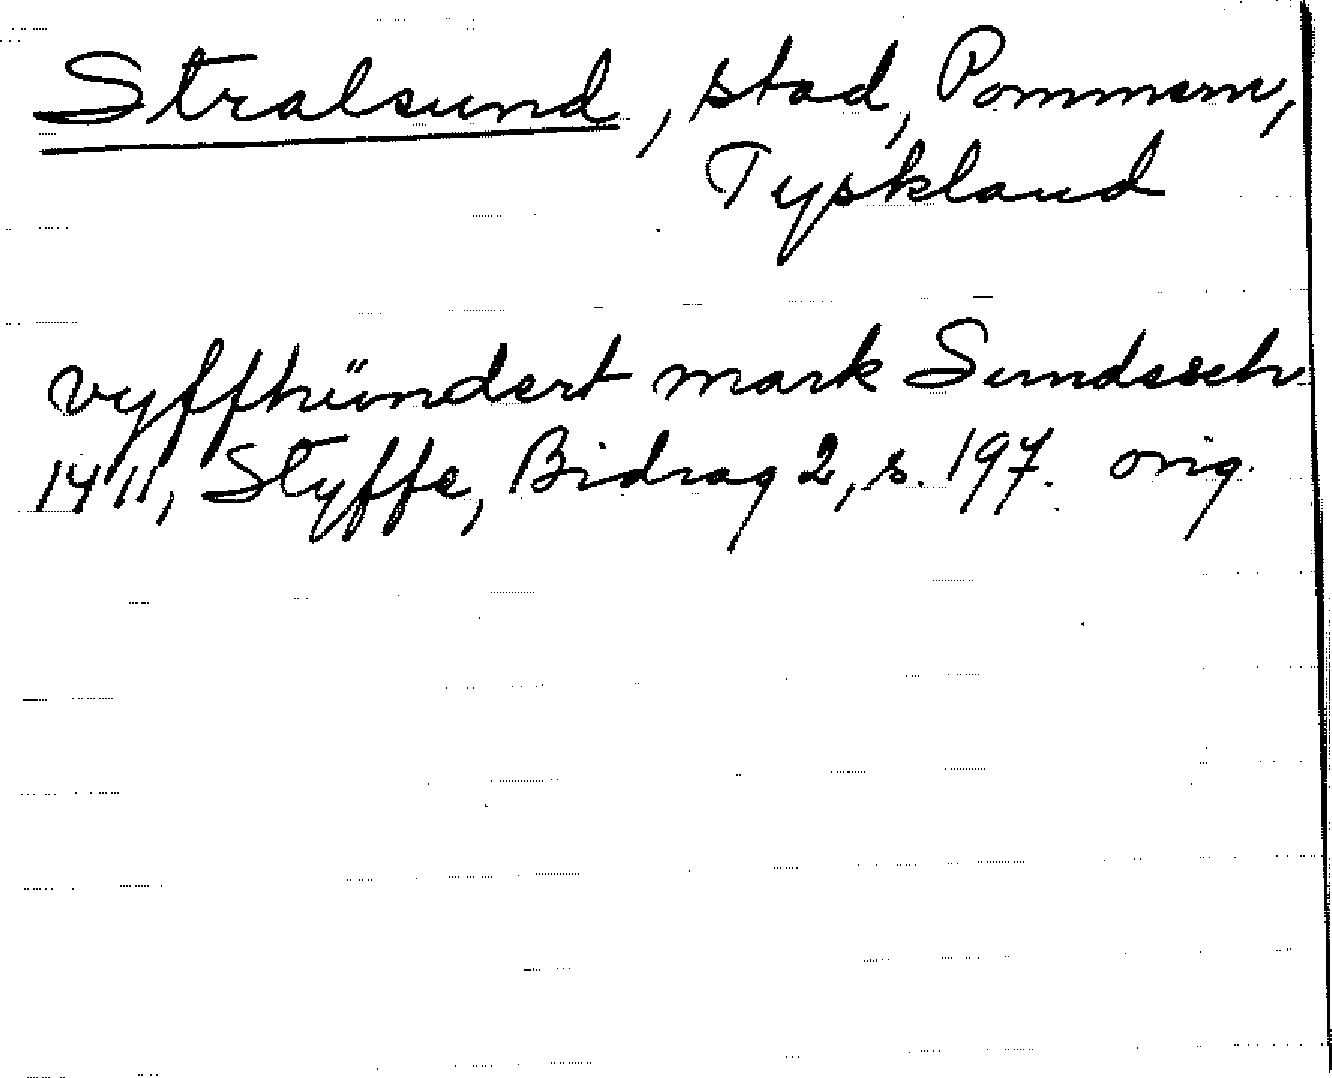 Stralsund, stad, Pommern,
Tyskland
vyffhündert mark Sundesch
1411, Styffe, Bidrag 2, s. 197. orig.